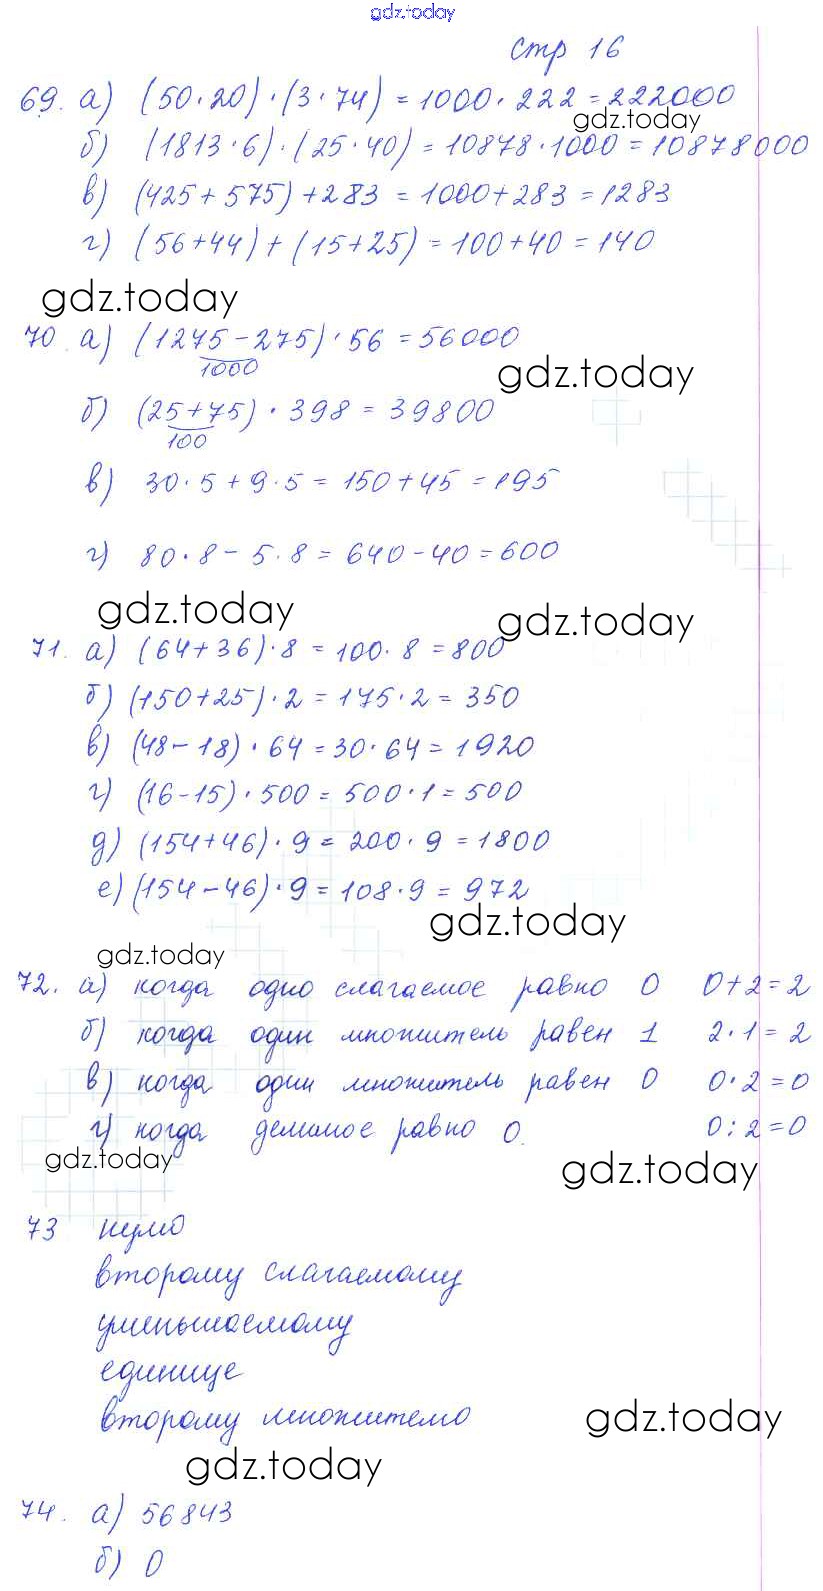 gdz.today
стр 16
69. а) (50·20)·(3·74) = 1000·222 = 222000
gdz.today
б) (1813·6)·(25·40) = 10878·1000 = 10878000
в) (425+575)+283 = 1000+283 = 1283
г) (56+44)+(15+25) = 100+40 = 140
gdz.today
70. а) (1275-275)·56 = 56000
1000
gdz.today
б) (25+75)·398 = 39800
100
в) 30·5+9·5 = 150+45 = 195
г) 80·8-5·8 = 640-40 = 600
gdz.today
gdz.today
71. а) (64+36)·8 = 100·8 = 800
б) (150+25)·2 = 175·2 = 350
в) (48-18)·64 = 30·64 = 1920
г) (16-15)·500 = 500·1 = 500
д) (154+46)·9 = 200·9 = 1800
е) (154-46)·9 = 108·9 = 972
gdz.today
gdz.today
72. а) когда одно слагаемое равно 0 0+2=2
б) когда один множитель равен 1 2·1=2
в) когда один множитель равен 0 0·2=0
г) когда делимое равно 0. 0:2=0
gdz.today
gdz.today
73 нулю
второму слагаемому
уменьшаемому
единице
второму множителю
gdz.today
gdz.today
74. а) 56843
б) 0